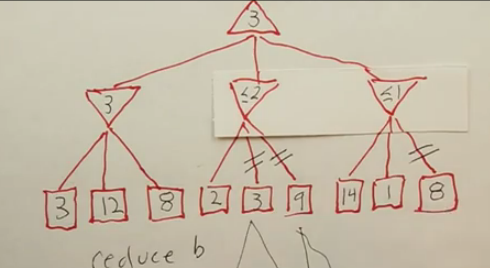 3
3 ≤2 ≤1
3 12 8 2 3 9 14 1 8
reduce b